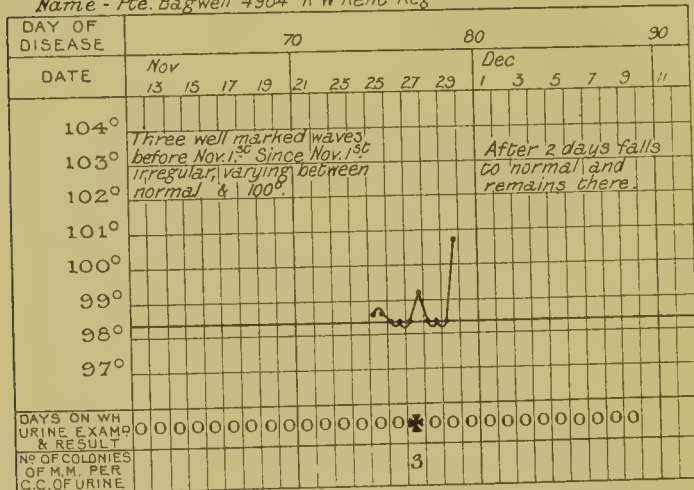 Name - Pte. Bagwell 4964 R W Kent Reg
DAY OF DISEASE 70 80 90
DATE Nov 13 15 17 19 21 23 25 27 29 Dec 1 3 5 7 9 11
104°
Three well marked waves
before Nov. 1st Since Nov. 1st
irregular, varying between
normal & 100°.
After 2 days falls
to normal and
remains there.
103°
102°
101°
100°
99°
98°
97°
DAYS ON WH
URINE EXAMD
& RESULT
0 0 0 0 0 0 0 0 0 0 0 0 0 0 0 ✠ 0 0 0 0 0 0 0 0 0 0 0 0
No OF COLONIES
OF M.M. PER
C.C. OF URINE
3